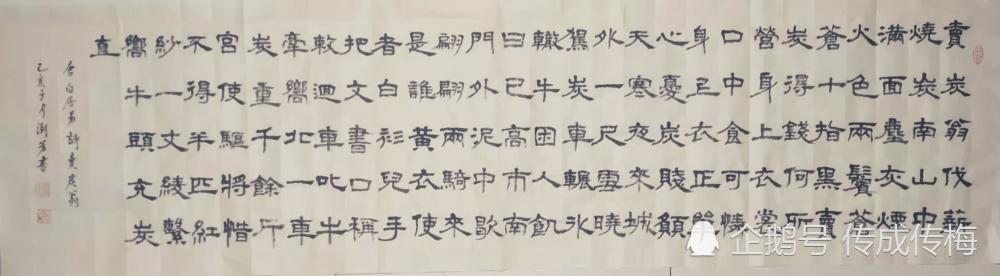 賣炭翁伐薪
燒炭南山中
滿面塵灰煙
火色兩鬢蒼
蒼十指黑賣
炭得錢何所
營身上衣裳
口中食可憐
身上衣正單
心憂炭賤願
天寒夜來城
外一尺雪曉
駕炭車輾氷
轍牛困人飢
日已高市南
門外泥中歇
翩翩兩騎來
是誰黃衣使
者白衫兒手
把文書口稱
敕迴車叱牛
牽嚮北一車
炭重千餘斤
宮使驅將惜
不得半匹紅
紗一丈綾繫
嚮牛頭充炭
直
唐白居易詩賣炭翁
己亥子月 書
企鹅号 传成传梅